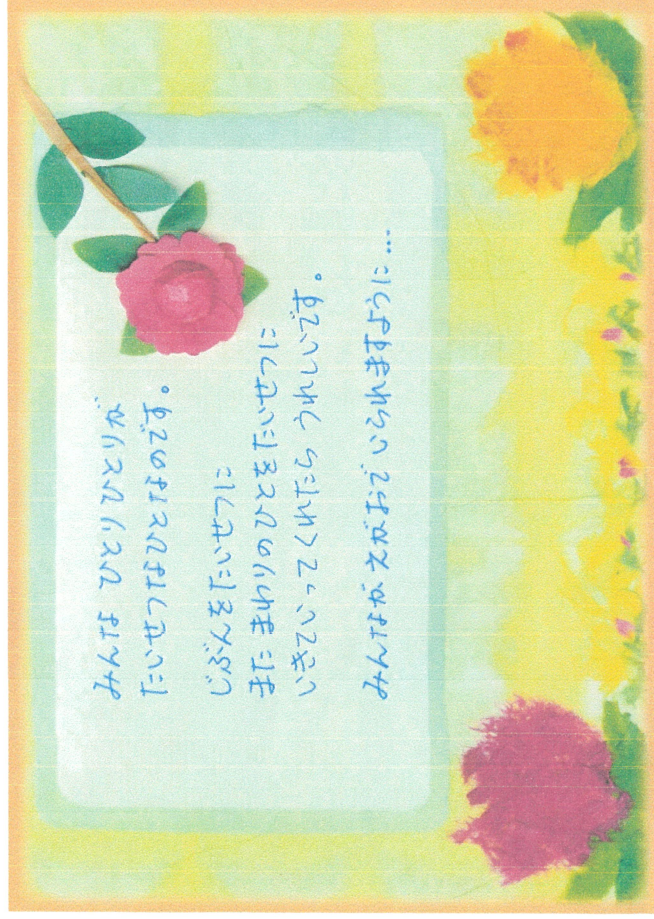 みんな ひとりひとりが
たいせつなひとなのです。
じぶんをたいせつに
また まわりのひとをたいせつに
いきていってくれたら うれしいです。
みんなが えがおで いられますように…